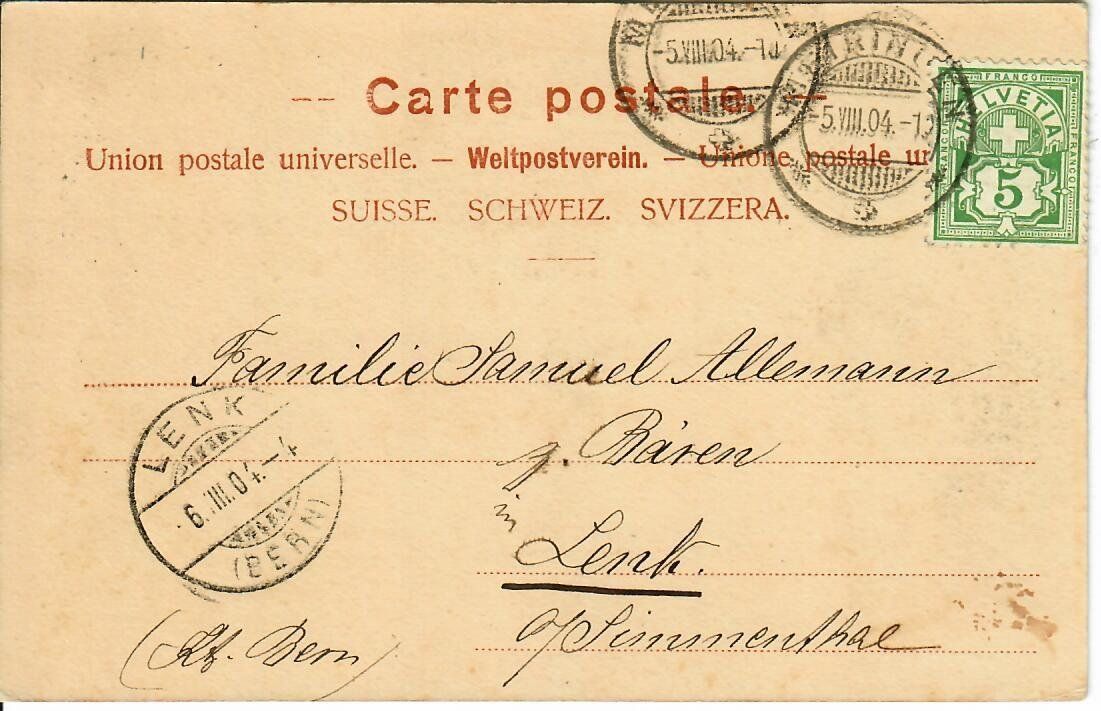 -5.VIII.04.-10
MEIRINGEN
-5.VIII.04.-10
FRANCO
HELVETIA
FRANCO
FRANCO
5
-- Carte postale. --
Union postale universelle. — Weltpostverein. — Unione postale un
SUISSE. SCHWEIZ. SVIZZERA.
Familie Samuel Allemann
z. Bären
in Lenk.
o/Simmenthal
(Kt. Bern)
LENK
6.VIII.04.-4
(BERN)